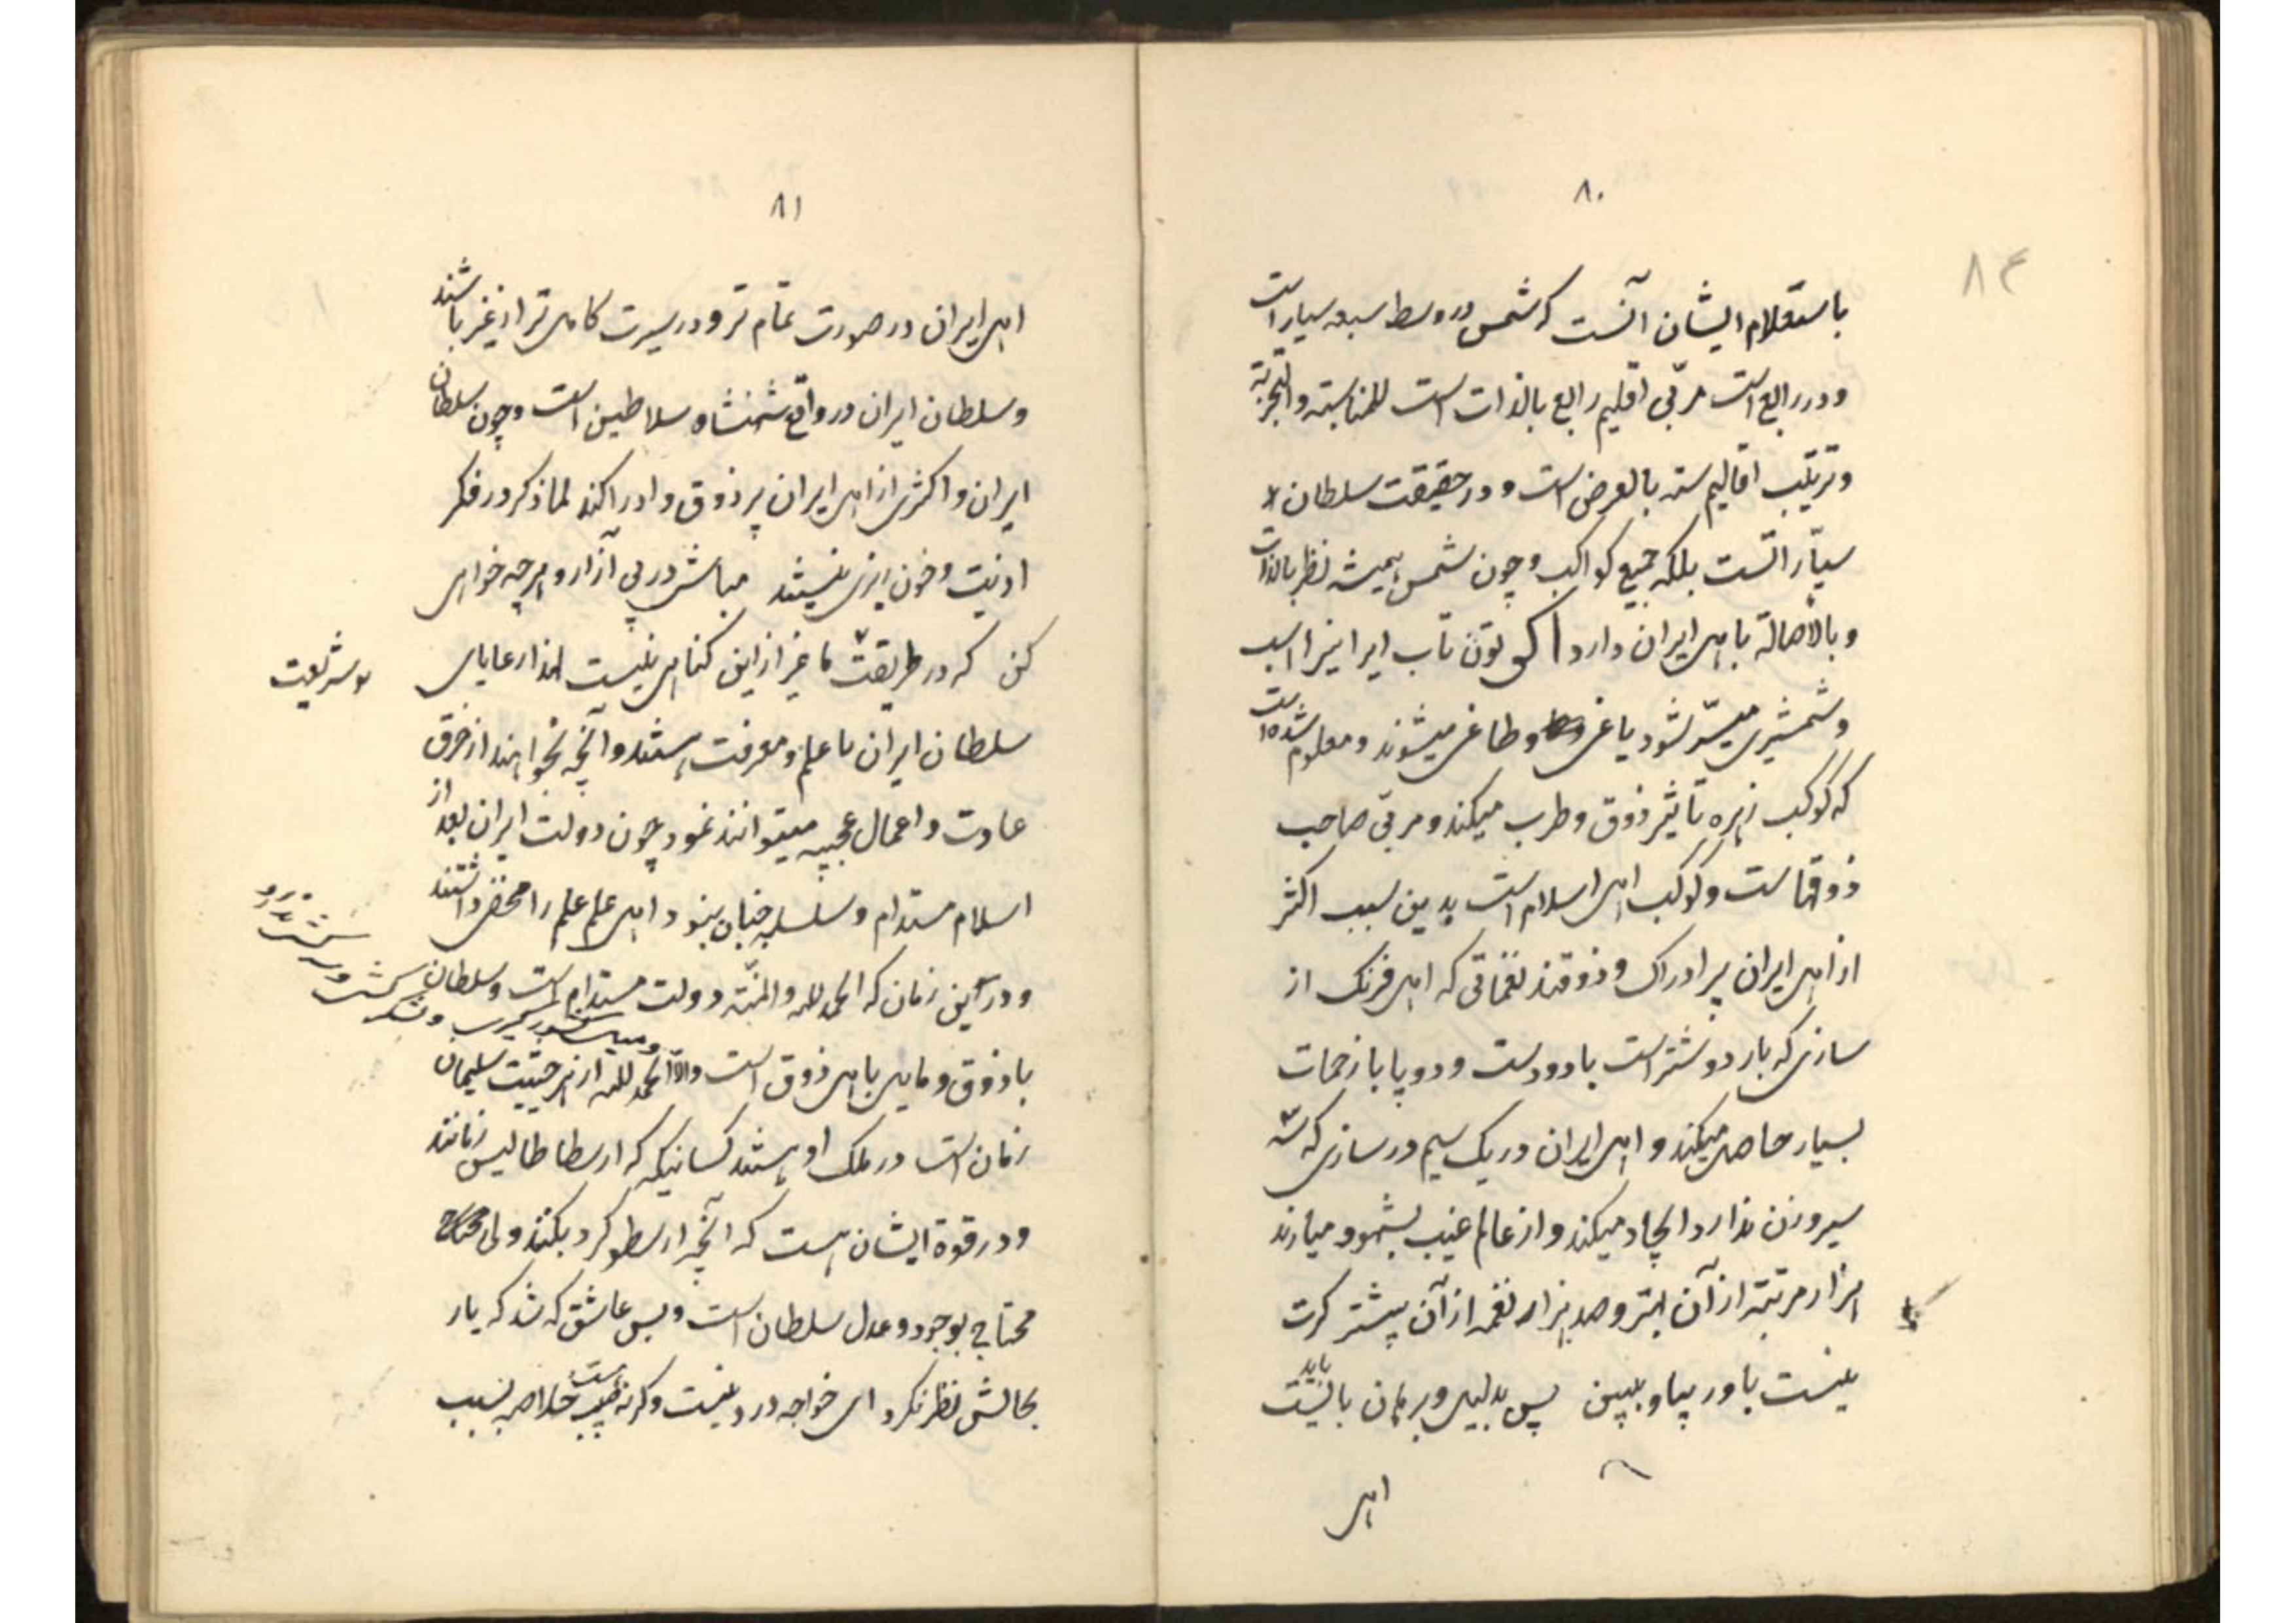 ۸۰
۸۴
باستقلام ایشان آنست که شمس در وسط سبعه سیار است
و در رابع است مربّی اقلیم رابع بالذات است للمناسبته والتجربته
و ترتیب اقالیم سته بالعرض است و در حقیقت سلطان
سیّاراتست بلکه جمیع کواکب و چون شمس همیشه نظر بالذات
و بالأصالة باهل ایران دارد اکر تون تاب ایرانیرا اسب
و شمشیری میسّر شود یاغی و طاغی میشوند و معلوم شده است
که کوکب زهره تأثیر ذوق و طرب میکند و مربّی صاحب
ذوقهاست و کوکب اهل اسلام است بدین سبب اکثر
از اهل ایران پر ادراک و ذوقند نغماتی که اهل فرنک از
سازی که بار دو شتر است با دو دست و دو پا با زحمات
بسیار حاصل میکند و اهل ایران در یک سیم در سازی که سه
سیر وزن ندارد ایجاد میکند و از عالم غیب بشهود میارند
هزار مرتبه از آن بهتر و صد هزار نغمه از آن بیشتر کرت
نیست باور بیا و ببین پس بدلیل و برهان باید بایست
اهل
۸۱
اهل ایران در صورت تمام تر و در سیرت کامل تر از غیر باشند
و سلطان ایران در واقع شهنشاه سلاطین است و چون سلطان
ایران و اکثری از اهل ایران پر ذوق و ادراکند لما ذکر در فکر
اذیت و خون ریزی نیستند مباش در پی آزار و هرچه خواهی
کن که در طریقت ما غیر ازاین کناهی نیست لهذا رعایای
شریعت
سلطان ایران با علم و معرفت هستند و آنچه بخواهند از خرق
عادت و اعمال عجیبه میتوانند نمود چون دولت ایران بعد از
اسلام مستدام و سلسله جنبان نبود اهل علم علم را مخفی داشتند
و در این زمان که الحمد لله والمنّه دولت مستدام است و سلطان
با ذوق و مایل باهل ذوق است والّا الحمد لله از هر حیثیت سلیمان
زمان است در ملک او هستند کسانیکه که ارسطاطالیس زمانند
و در قوة ایشان هست که آنچه ارسطو کرد بکنند ولی
محتاج بوجود و عدل سلطان است و بس عاشق که شد که یار
بحالش نظر نکرد ای خواجه درد نیست وکرنه طبیب هست خلاصه بسبب